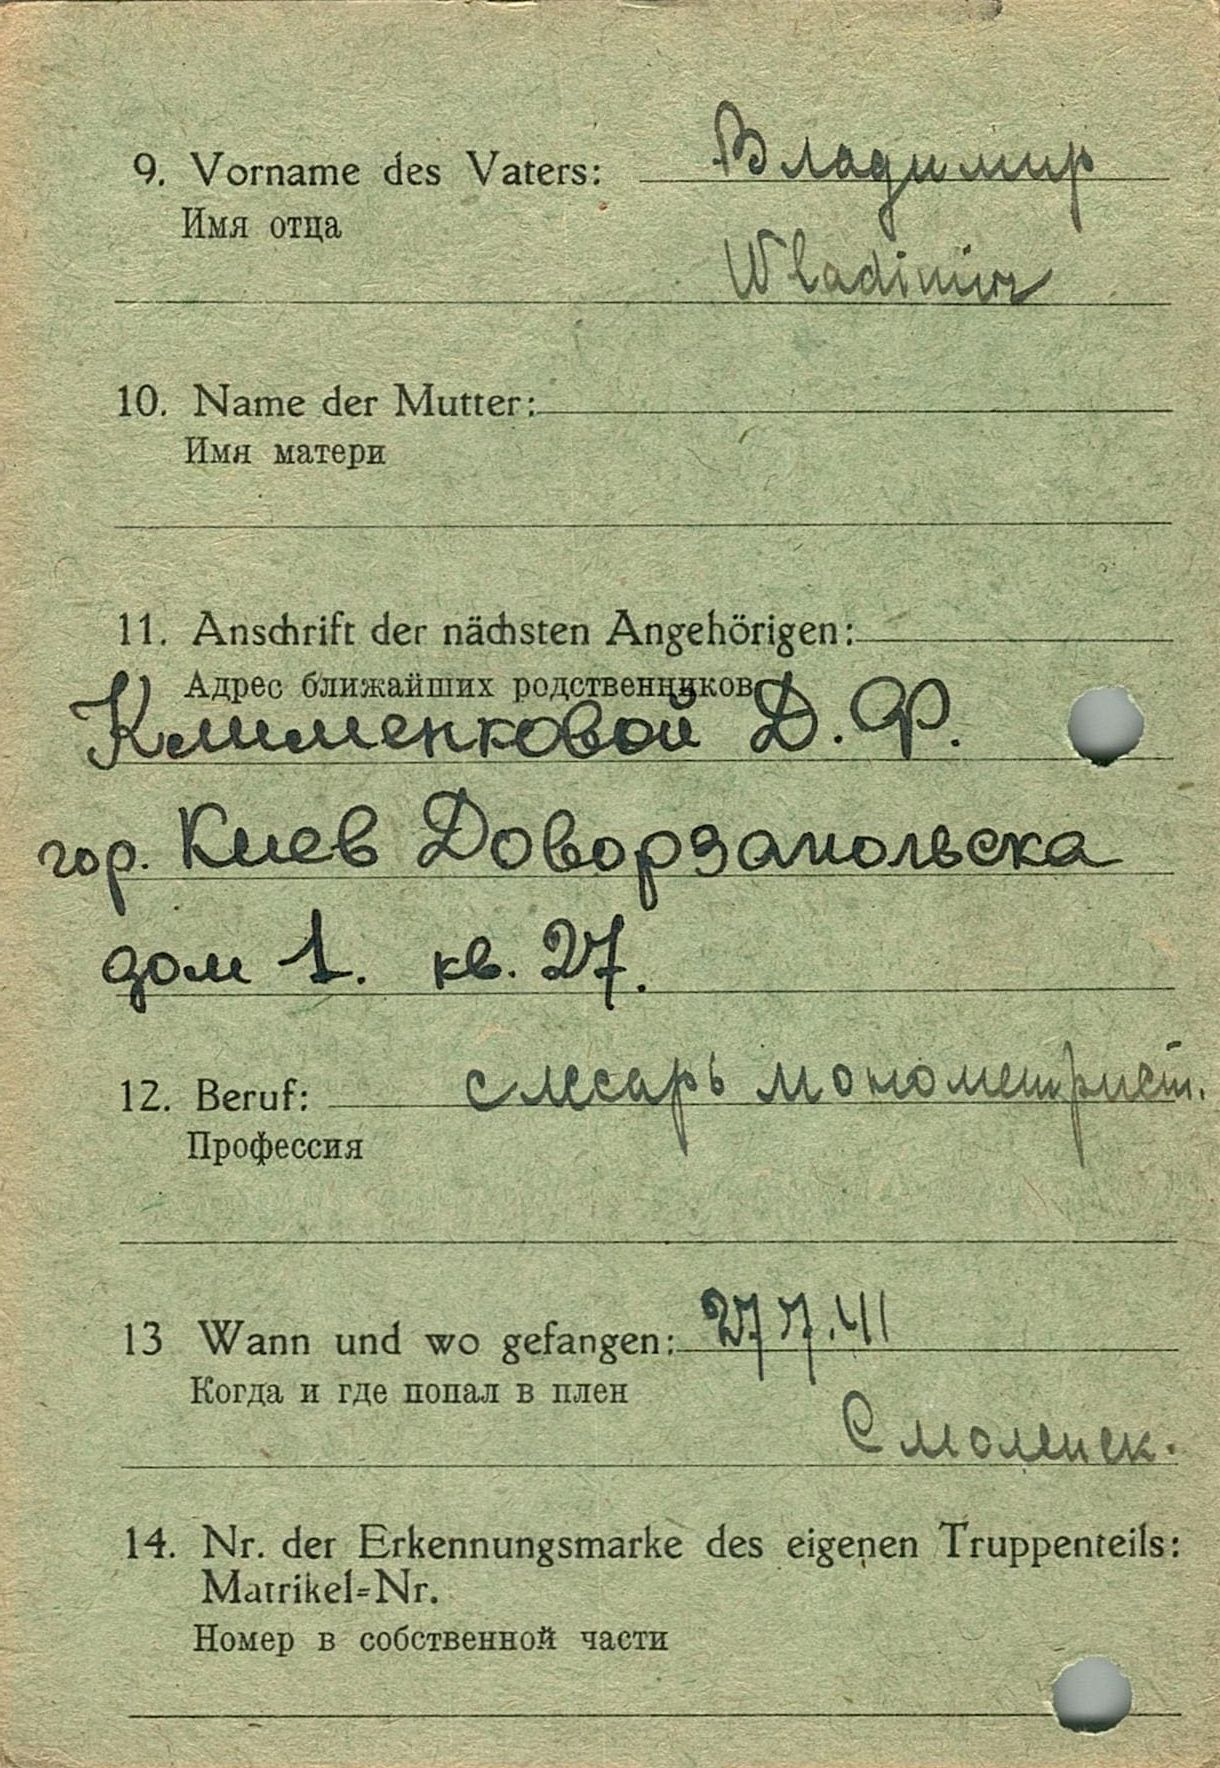 9. Vorname des Vaters: Владимир
Имя отца
Wladimir
10. Name der Mutter:
Имя матери
11. Anschrift der nächsten Angehörigen:
Адрес ближайших родственников
Клименковой Д. Ф.
гор. Киев Доворзапольска
дом 1. кв. 27.
12. Beruf: слесарь монометрист.
Профессия
13 Wann und wo gefangen: 27 7. 41
Когда и где попал в плен
Смоленск.
14. Nr. der Erkennungsmarke des eigenen Truppenteils:
Matrikel=Nr.
Номер в собственной части